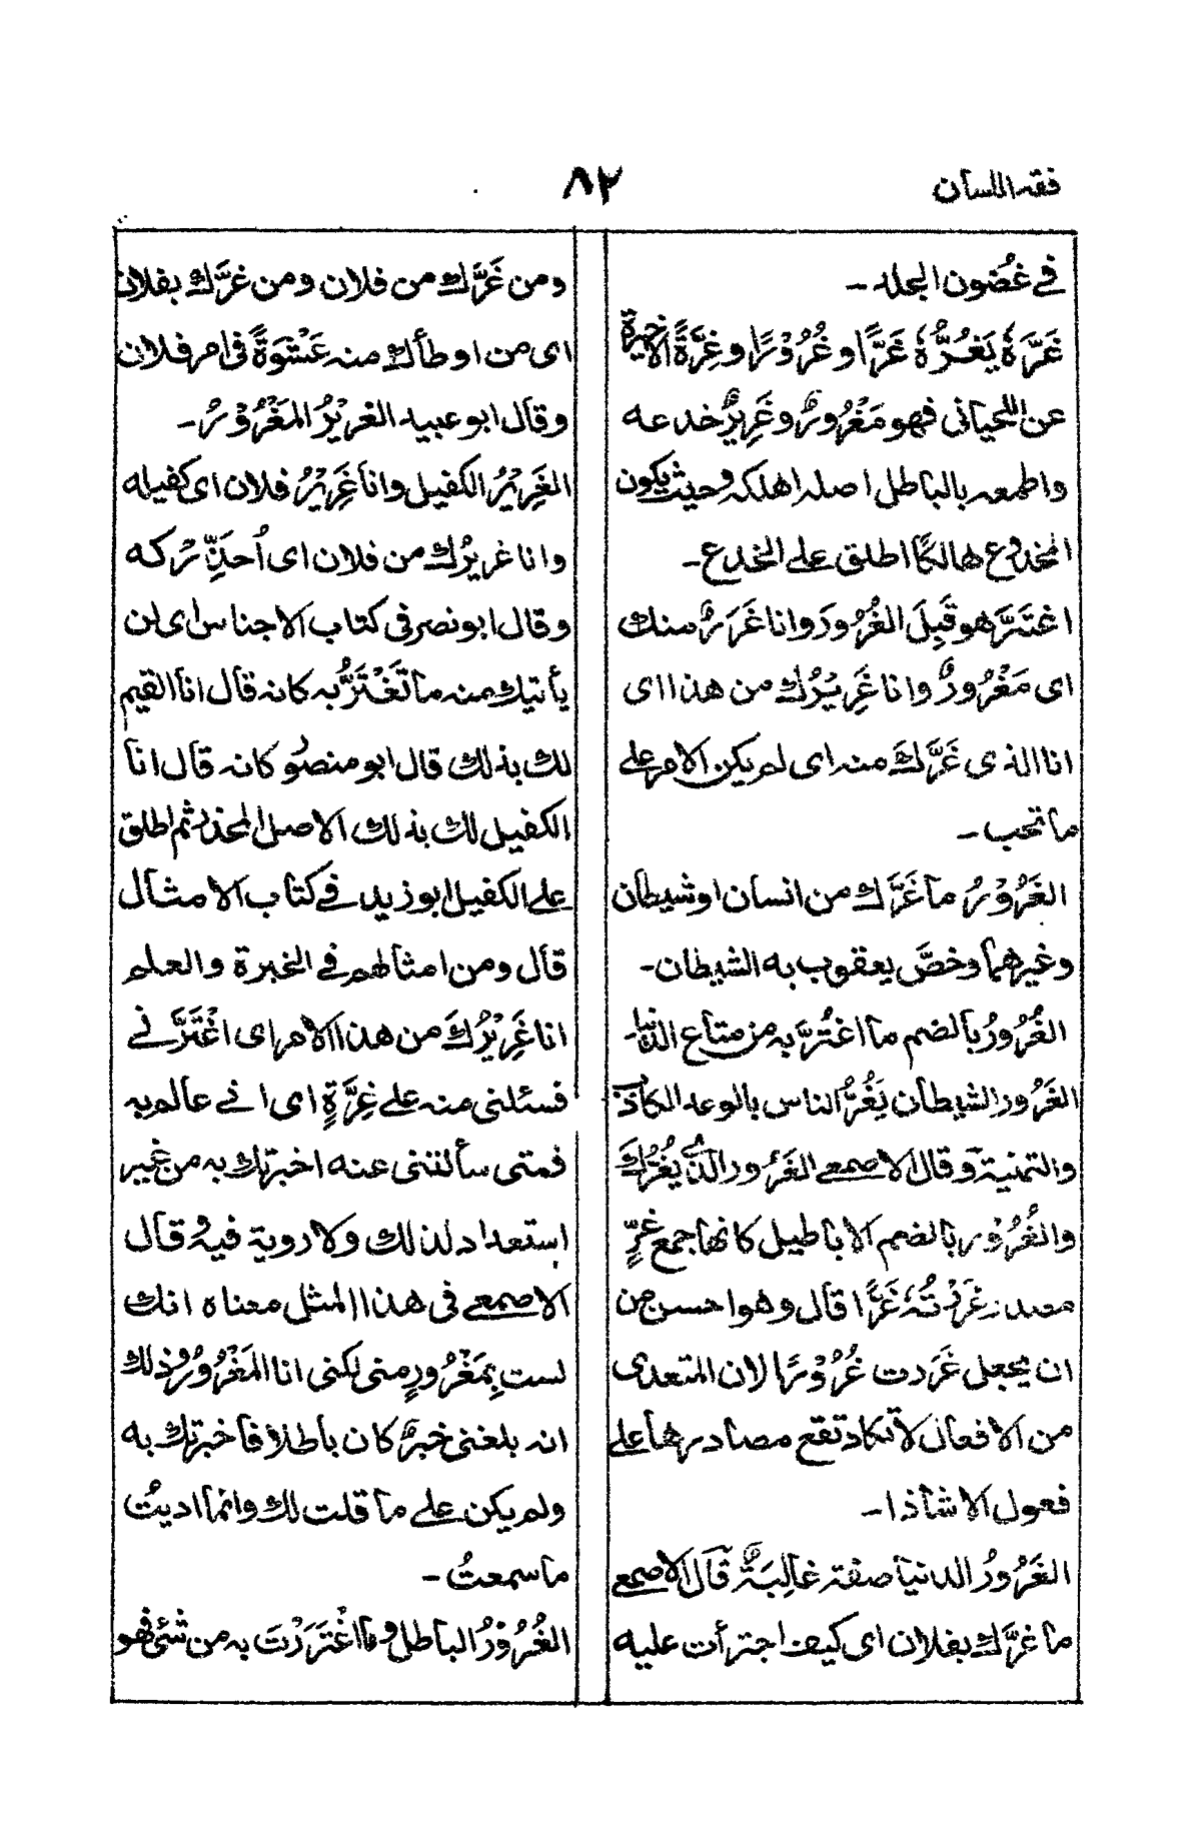 فقه اللسان
٨٢
في غُضون الجلد ـ
غَرَّهٗ يَغُرُّهٗ غَرًّا و غُرُوْرًا و غِرَّةً الاخيرة
عن اللحياني فهو مَغْرُورٌ و غَرِيرٌ خدعه
واطمعه بالباطل اصله اهلكه وحيث يكون
المخدوع هالكًا اطلق على الخدع ـ
اغتَرَّ هو قَبِلَ الغُرُورَ وانا غَرَرٌ منك
اى مَغْرُورٌ وانا غَرِيْرُك من هذا اى
انا الذى غَرَّكَ منه اى لم يكن الامر على
ما تحب ـ
الغَرُوْرُ ما غَرَّك من انسان او شيطان
وغيرهما وخصَّ يعقوب به الشيطان ـ
الغُرُورُ بالضم ما اغتُرَّ به من متاع الدنيا ـ
الغَرُور الشيطان يَغُرُّ الناس بالوعد الكاذب
والتمنية وقال الاصمعي الغَرُور الذي يَغُرُّكَ
والغُرُوْر بالضم الاباطيل كانها جمع غَرٍّ
مصدر غَرَرْتُهٗ غَرًّا قال وهو احسن من
ان يجعل غَرَرت غُرُوْرًا لان المتعدى
من الافعال لا تكاد تقع مصادرها على
فعول الا شاذا ـ
الغَرُورُ الدنيا صفة غالِبَةٌ قَال الاصمعي
ما غَرَّك بفلان اى كيف اجترأت عليه
ومن غَرَّك من فلان ومن غرَّك بفلان
اى من اوطأك منه عَشْوَةً فى امر فلان
وقال ابو عبيد الغريْرُ المَغْرُوْرُ ـ
الغَرِيْرُ الكفيل وانا غَرِيْرُ فلان اى كفيله
وانا غريرُك من فلان اى اُحذِّرُكه
وقال ابو نصر فى كتاب الاجناس اى لن
يأتيك منه ما تَغْتَرُّ به كانه قال انا القيم
لك بذلك قال ابو منصور كانه قال انا
الكفيل لك بذلك الاصل المحذر ثم اطلق
على الكفيل ابو زيد في كتاب الامثال
قال ومن امثالهم في الخبرة والعلم
انا غَرِيْرُكَ من هذا الامر اى اغْتَرَّنے
فسئلنى منه على غِرَّةٍ اى انے عالم به
فمتى سألتنى عنه اخبرتك به من غير
استعداد لذلك ولا روية فيه وقال
الاصمعے فى هذا المثل معناه انك
لست بِمَغْرُورٍ منى لكنى انا المَغْرُورُ وذلك
انه بلغنى خبرٌ كان باطلا فاخبرتك به
ولم يكن على ما قلت لك وانما اديتُ
ما سمعتُ ـ
الغُرُوْرُ الباطل وما اغْتَرَرْتَ به من شئ فهو